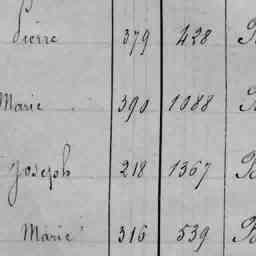 Pierre 379 428
Marie 390 1088
Joseph 218 1367
Marie 316 539